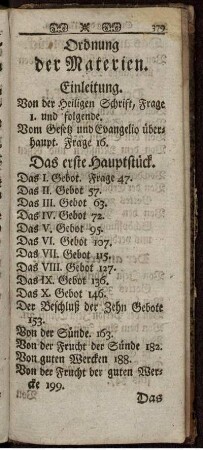 379
Ordnung
der Materien.
Einleitung.
Von der Heiligen Schrift, Frage
1. und folgende.
Vom Gesetz und Evangelio über-
haupt. Frage 16.
Das erste Hauptstück.
Das I. Gebot. Frage 47.
Das II. Gebot 57.
Das III. Gebot 63.
Das IV. Gebot 72.
Das V. Gebot 95.
Das VI. Gebot 107.
Das VII. Gebot 115.
Das VIII. Gebot 127.
Das IX. Gebot 136.
Das X. Gebot 146.
Der Beschluß der Zehn Gebote
153.
Von der Sünde. 163.
Von der Frucht der Sünde 182.
Von guten Wercken 188.
Von der Frucht der guten Wer-
cke 199.
Das